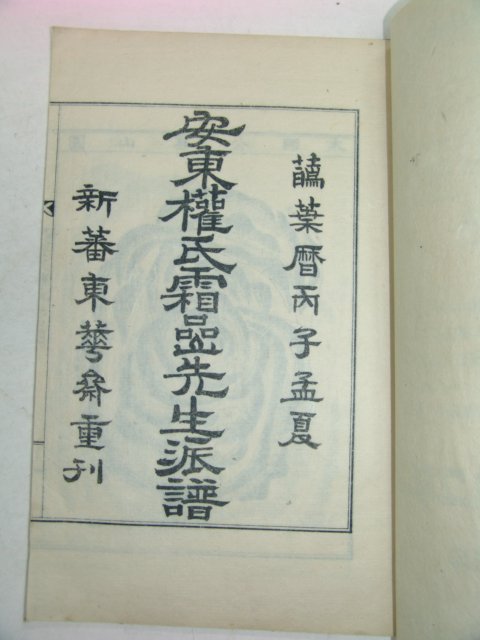 葉曆丙子孟夏
安東權氏霜嵒先生派譜
新蕃東華斎重刊